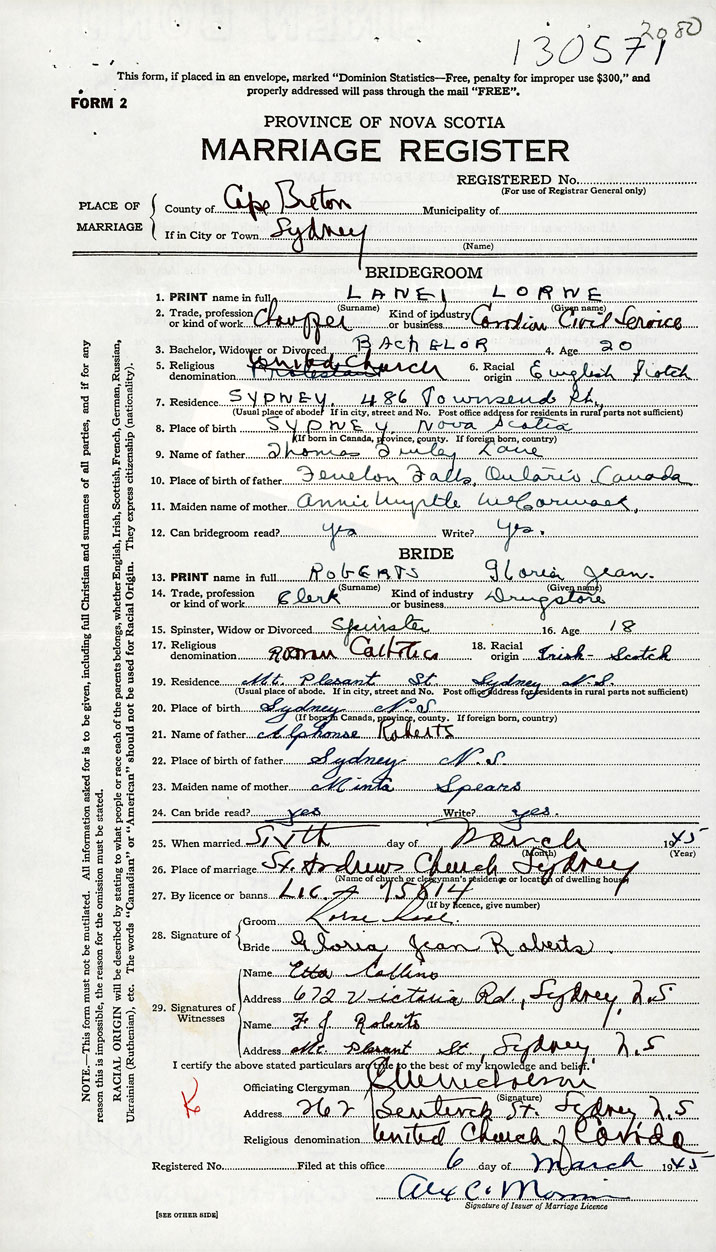 2080
130571
This form, if placed in an envelope, marked "Dominion Statistics—Free, penalty for improper use $300," and
properly addressed will pass through the mail "FREE".
FORM 2
PROVINCE OF NOVA SCOTIA
MARRIAGE REGISTER
REGISTERED No.
(For use of Registrar General only)
PLACE OF MARRIAGE
County of Cape Breton Municipality of
If in City or Town Sydney
(Name)
BRIDEGROOM
1. PRINT name in full LANE, LORNE
(Surname) (Given name)
2. Trade, profession or kind of work Chauffer Kind of industry or business Canadian Civil Service
3. Bachelor, Widower or Divorced BACHELOR 4. Age 20
5. Religious denomination United Church Protestant 6. Racial origin English Scotch
7. Residence SYDNEY. 486 Townsend St.,
(Usual place of abode. If in city, street and No. Post office address for residents in rural parts not sufficient)
8. Place of birth SYDNEY, Nova Scotia
(If born in Canada, province, county. If foreign born, country)
9. Name of father Thomas Finley Lane
10. Place of birth of father Fenelon Falls, Ontario, Canada
11. Maiden name of mother Annie Myrtle McCormack,
12. Can bridegroom read? yes Write? Yes.
BRIDE
13. PRINT name in full ROBERTS Gloria Jean.
(Surname) (Given name)
14. Trade, profession or kind of work Clerk Kind of industry or business Drugstore
15. Spinster, Widow or Divorced Spinster 16. Age 18
17. Religious denomination Roman Catholic 18. Racial origin Irish-Scotch
19. Residence Mt. Plesant St. Sydney N.S.
(Usual place of abode. If in city, street and No. Post office address for residents in rural parts not sufficient)
20. Place of birth Sydney N.S.
(If born in Canada, province, county. If foreign born, country)
21. Name of father Alphonse Roberts
22. Place of birth of father Sydney N.S.
23. Maiden name of mother Minta Spears
24. Can bride read? yes Write? yes.
25. When married Sixth day of March 1945
(Month) (Year)
26. Place of marriage St. Andrews Church Sydney
(Name of church or clergyman's residence or location of dwelling house)
27. By licence or banns Lic. A 75814
(If by licence, give number)
28. Signature of
Groom Lorne Lane.
Bride Gloria Jean Roberts.
29. Signatures of Witnesses
Name Etta Collins
Address 672 Victoria Rd., Sydney, N.S
Name F. J. Roberts
Address Mt. Plesant St, Sydney N.S
I certify the above stated particulars are true to the best of my knowledge and belief.
Officiating Clergyman
(Signature)
Address 262 St. Sydney N.S
Religious denomination United Church of Canada
Registered No. Filed at this office 6 day of March 1945
Alex C.
Signature of Issuer of Marriage Licence
[SEE OTHER SIDE]
NOTE.—This form must not be mutilated. All information asked for is to be given, including full Christian and surnames of all parties, and if for any
reason this is impossible, the reason for the omission must be stated.
RACIAL ORIGIN will be described by stating to what people or race each of the parents belongs, whether English, Irish, Scottish, French, German, Russian,
Ukrainian (Ruthenian), etc. The words "Canadian" or "American" should not be used for Racial Origin. They express citizenship (nationality).